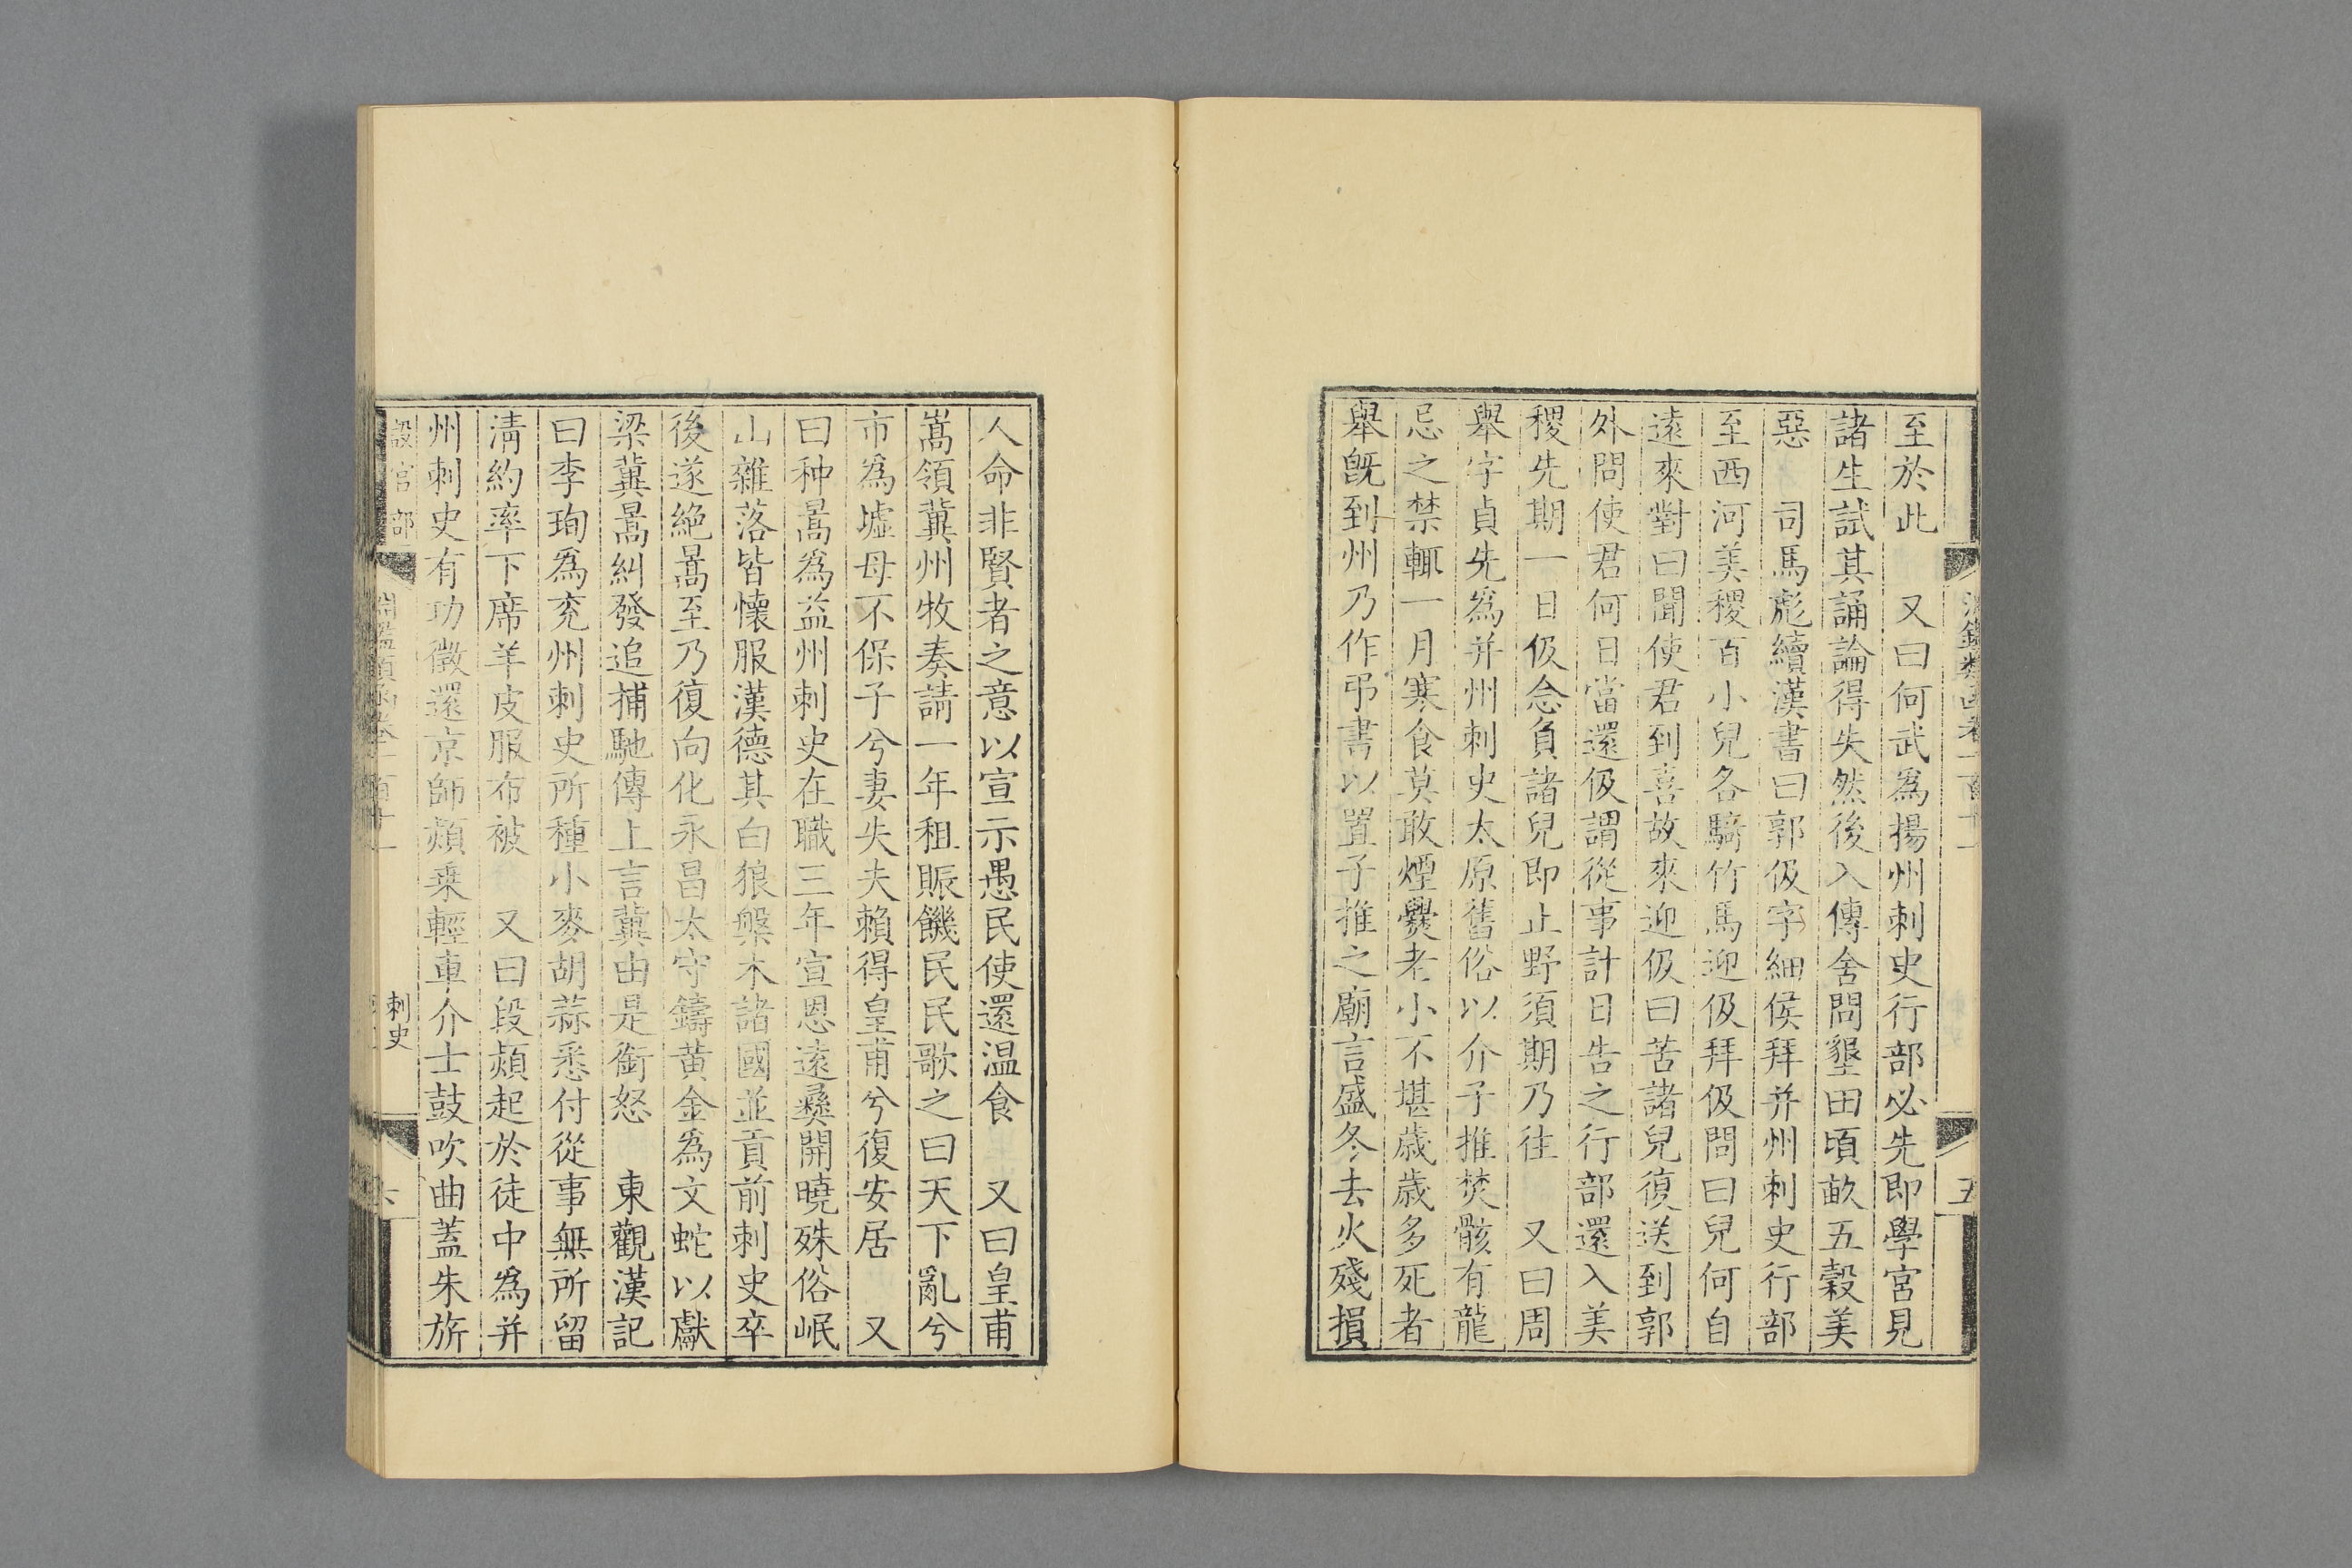 至於此　又曰何武爲揚州刺史行部必先即學宮見
諸生試其誦論得失然後入傳舍問墾田頃畝五穀美
惡　司馬彪續漢書曰郭伋字細侯拜并州刺史行部
至西河美稷百小兒各騎竹馬迎伋拜伋問曰兒何自
遠來對曰聞使君到喜故來迎伋曰苦諸兒復送到郭
外問使君何日當還伋謂從事計日告之行部還入美
稷先期一日伋念負諸兒即止野須期乃往　又曰周
舉字貞先爲并州刺史太原舊俗以介子推焚骸有龍
忌之禁輒一月寒食莫敢煙爨老小不堪歲歲多死者
舉旣到州乃作弔書以置子推之廟言盛冬去火殘損
五
人命非賢者之意以宣示愚民使還温食　又曰皇甫
嵩領冀州牧奏請一年租賑饑民民歌之曰天下亂兮
市爲墟母不保子兮妻失夫賴得皇甫兮復安居　又
曰种暠爲益州刺史在職三年宣恩遠彞開曉殊俗岷
山雜落皆懷服漢德其白狼槃木諸國並貢前刺史卒
後遂絶暠至乃復向化永昌太守鑄黄金爲文蛇以獻
梁冀暠糾發追捕馳傳上言冀由是銜怒　東觀漢記
曰李珣爲兖州刺史所種小麥胡蒜悉付從事無所留
清約率下席羊皮服布被　又曰段熲起於徒中爲并
州刺史有功徵還京師熲乗輕車介士鼓吹曲蓋朱旂
設官部
刺史